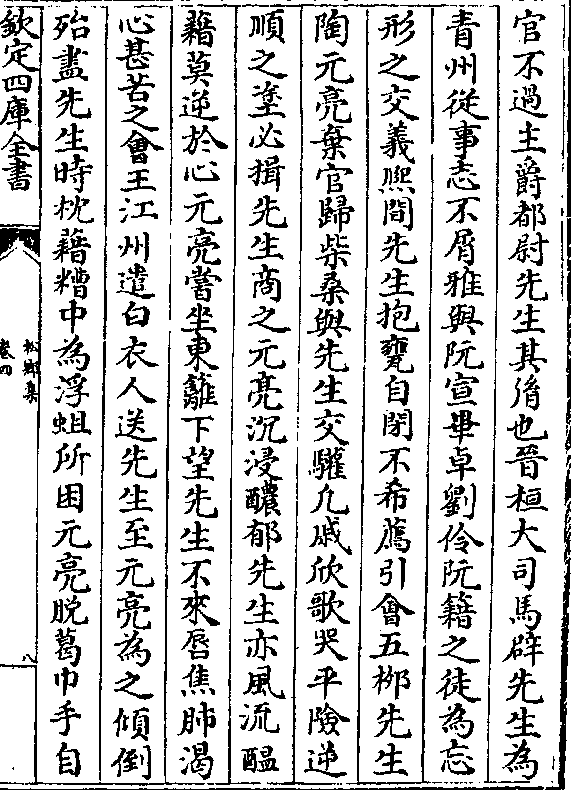 官不過主爵都尉先生其脩也晉桓大司馬辟先生為
青州從事志不屑雅與阮宣畢卓劉伶阮籍之徒為忘
形之交義熙間先生抱甕自閉不希薦引會五栁先生
陶元亮棄官歸柴桑與先生交驩凢戚欣歌哭平險逆
順之塗必揖先生商之元亮沉浸醲郁先生亦風流醖
藉莫逆於心元亮嘗坐東籬下望先生不來唇焦肺渴
心甚苦之會王江州遣白衣人送先生至元亮為之傾倒
殆盡先生時枕藉糟中為浮蛆所困元亮脫葛巾手自
欽定四庫全書
松鄉集
卷四
八